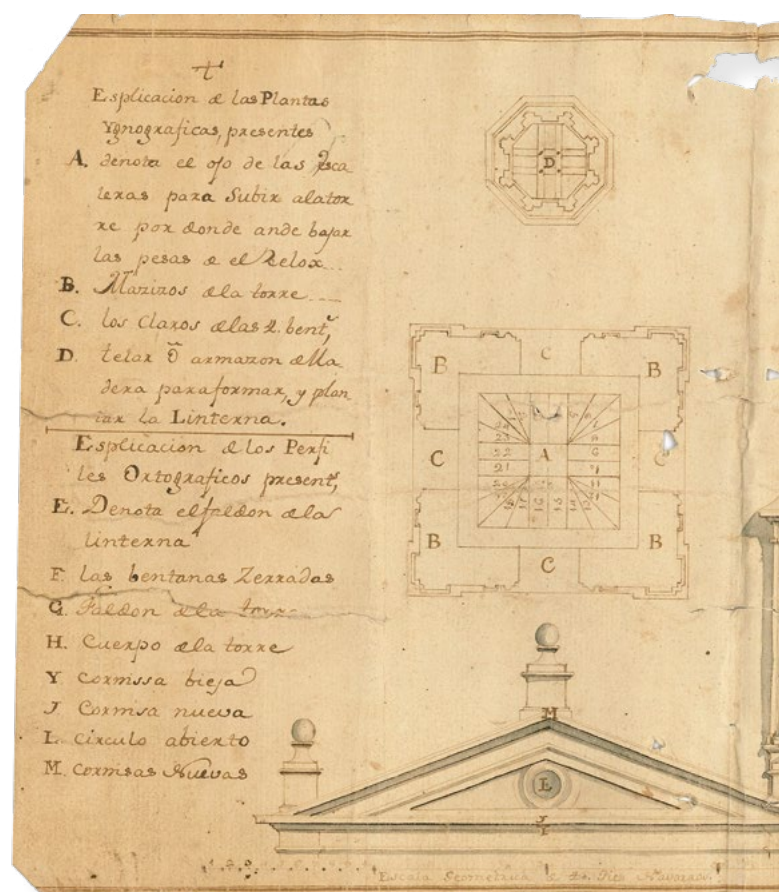 Esplicacion de las Plantas
Ygnograficas, presentes
A. denota el ojo de las Esca
leras para Subir alator
re por donde ande bajar
las pesas de el Relox
B. Mazizos dela torre
C. los Claros delas 4. bent.s
D. telar ô armazon de Ma
dera para formar, y plan
tar la Linterna.
Esplicacion de los Perfi
les Ortograficos present.s
E. Denota el faldon dela
linterna
F. las bentanas Zerradas
G. Faldon dela torre
H. Cuerpo dela torre
Y. Cornissa bieja
J. Cornisa nueva
L. Circulo abierto
M. Cornisas Nuevas
D
C
B
B
C
A
C
B
B
C
24
23
22
21
6
16
15
M
L
J
Y
Escala Geometrica de